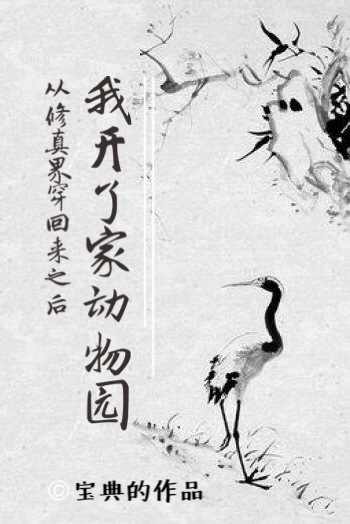 从修真界穿回来之后
我开了家动物园
©宝典的作品